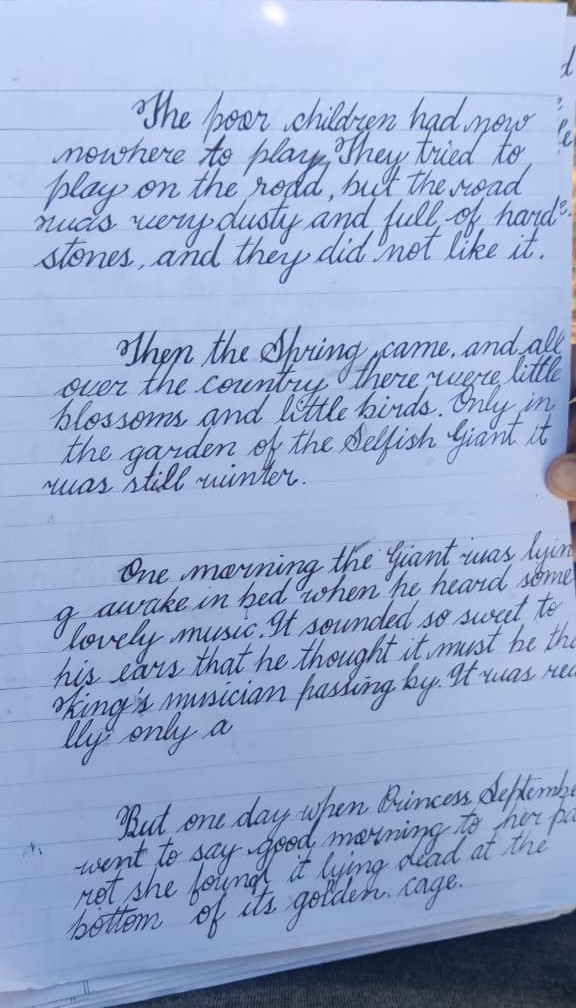 The poor children had now
nowhere to play. They tried to
play on the road, but the road
was very dusty and full of hard
stones, and they did not like it.
Then the Spring came, and all
over the country there were little
blossoms and little birds. Only in
the garden of the Selfish Giant it
was still winter.
One morning the Giant was lyin
g awake in bed when he heard some
lovely music. It sounded so sweet to
his ears that he thought it must be the
King's musician passing by. It was rea
lly only a
But one day when Princess Septembe
went to say good morning to her pa
rot she found it lying dead at the
bottom of its golden cage.